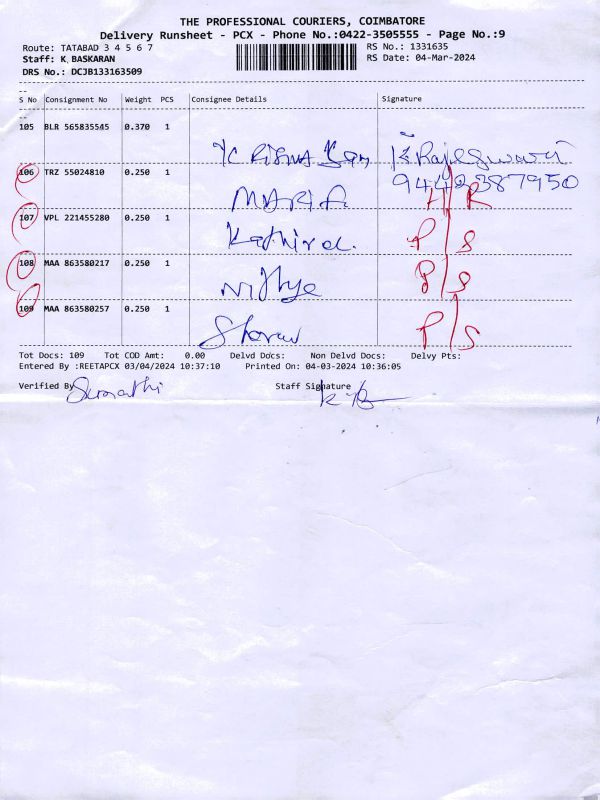 THE PROFESSIONAL COURIERS, COIMBATORE
Delivery Runsheet - PCX - Phone No.:0422-3505555 - Page No.:9
Route: TATABAD 3 4 5 6 7
RS No.: 1331635
Staff: K.BASKARAN
RS Date: 04-Mar-2024
DRS No.: DCJB133163509
S No Consignment No Weight PCS Consignee Details Signature
105 BLR 565835545 0.370 1
K Rajeswari
106 TRZ 55024810 0.250 1
9442387950
H/R
107 VPL 221455280 0.250 1
Kathirvel. P/S
108 MAA 863580217 0.250 1
Nithya P/S
109 MAA 863580257 0.250 1
P/S
Tot Docs: 109 Tot COD Amt: 0.00 Delvd Docs: Non Delvd Docs: Delvy Pts:
Entered By :REETAPCX 03/04/2024 10:37:10 Printed On: 04-03-2024 10:36:05
Verified By Sumathi Staff Signature